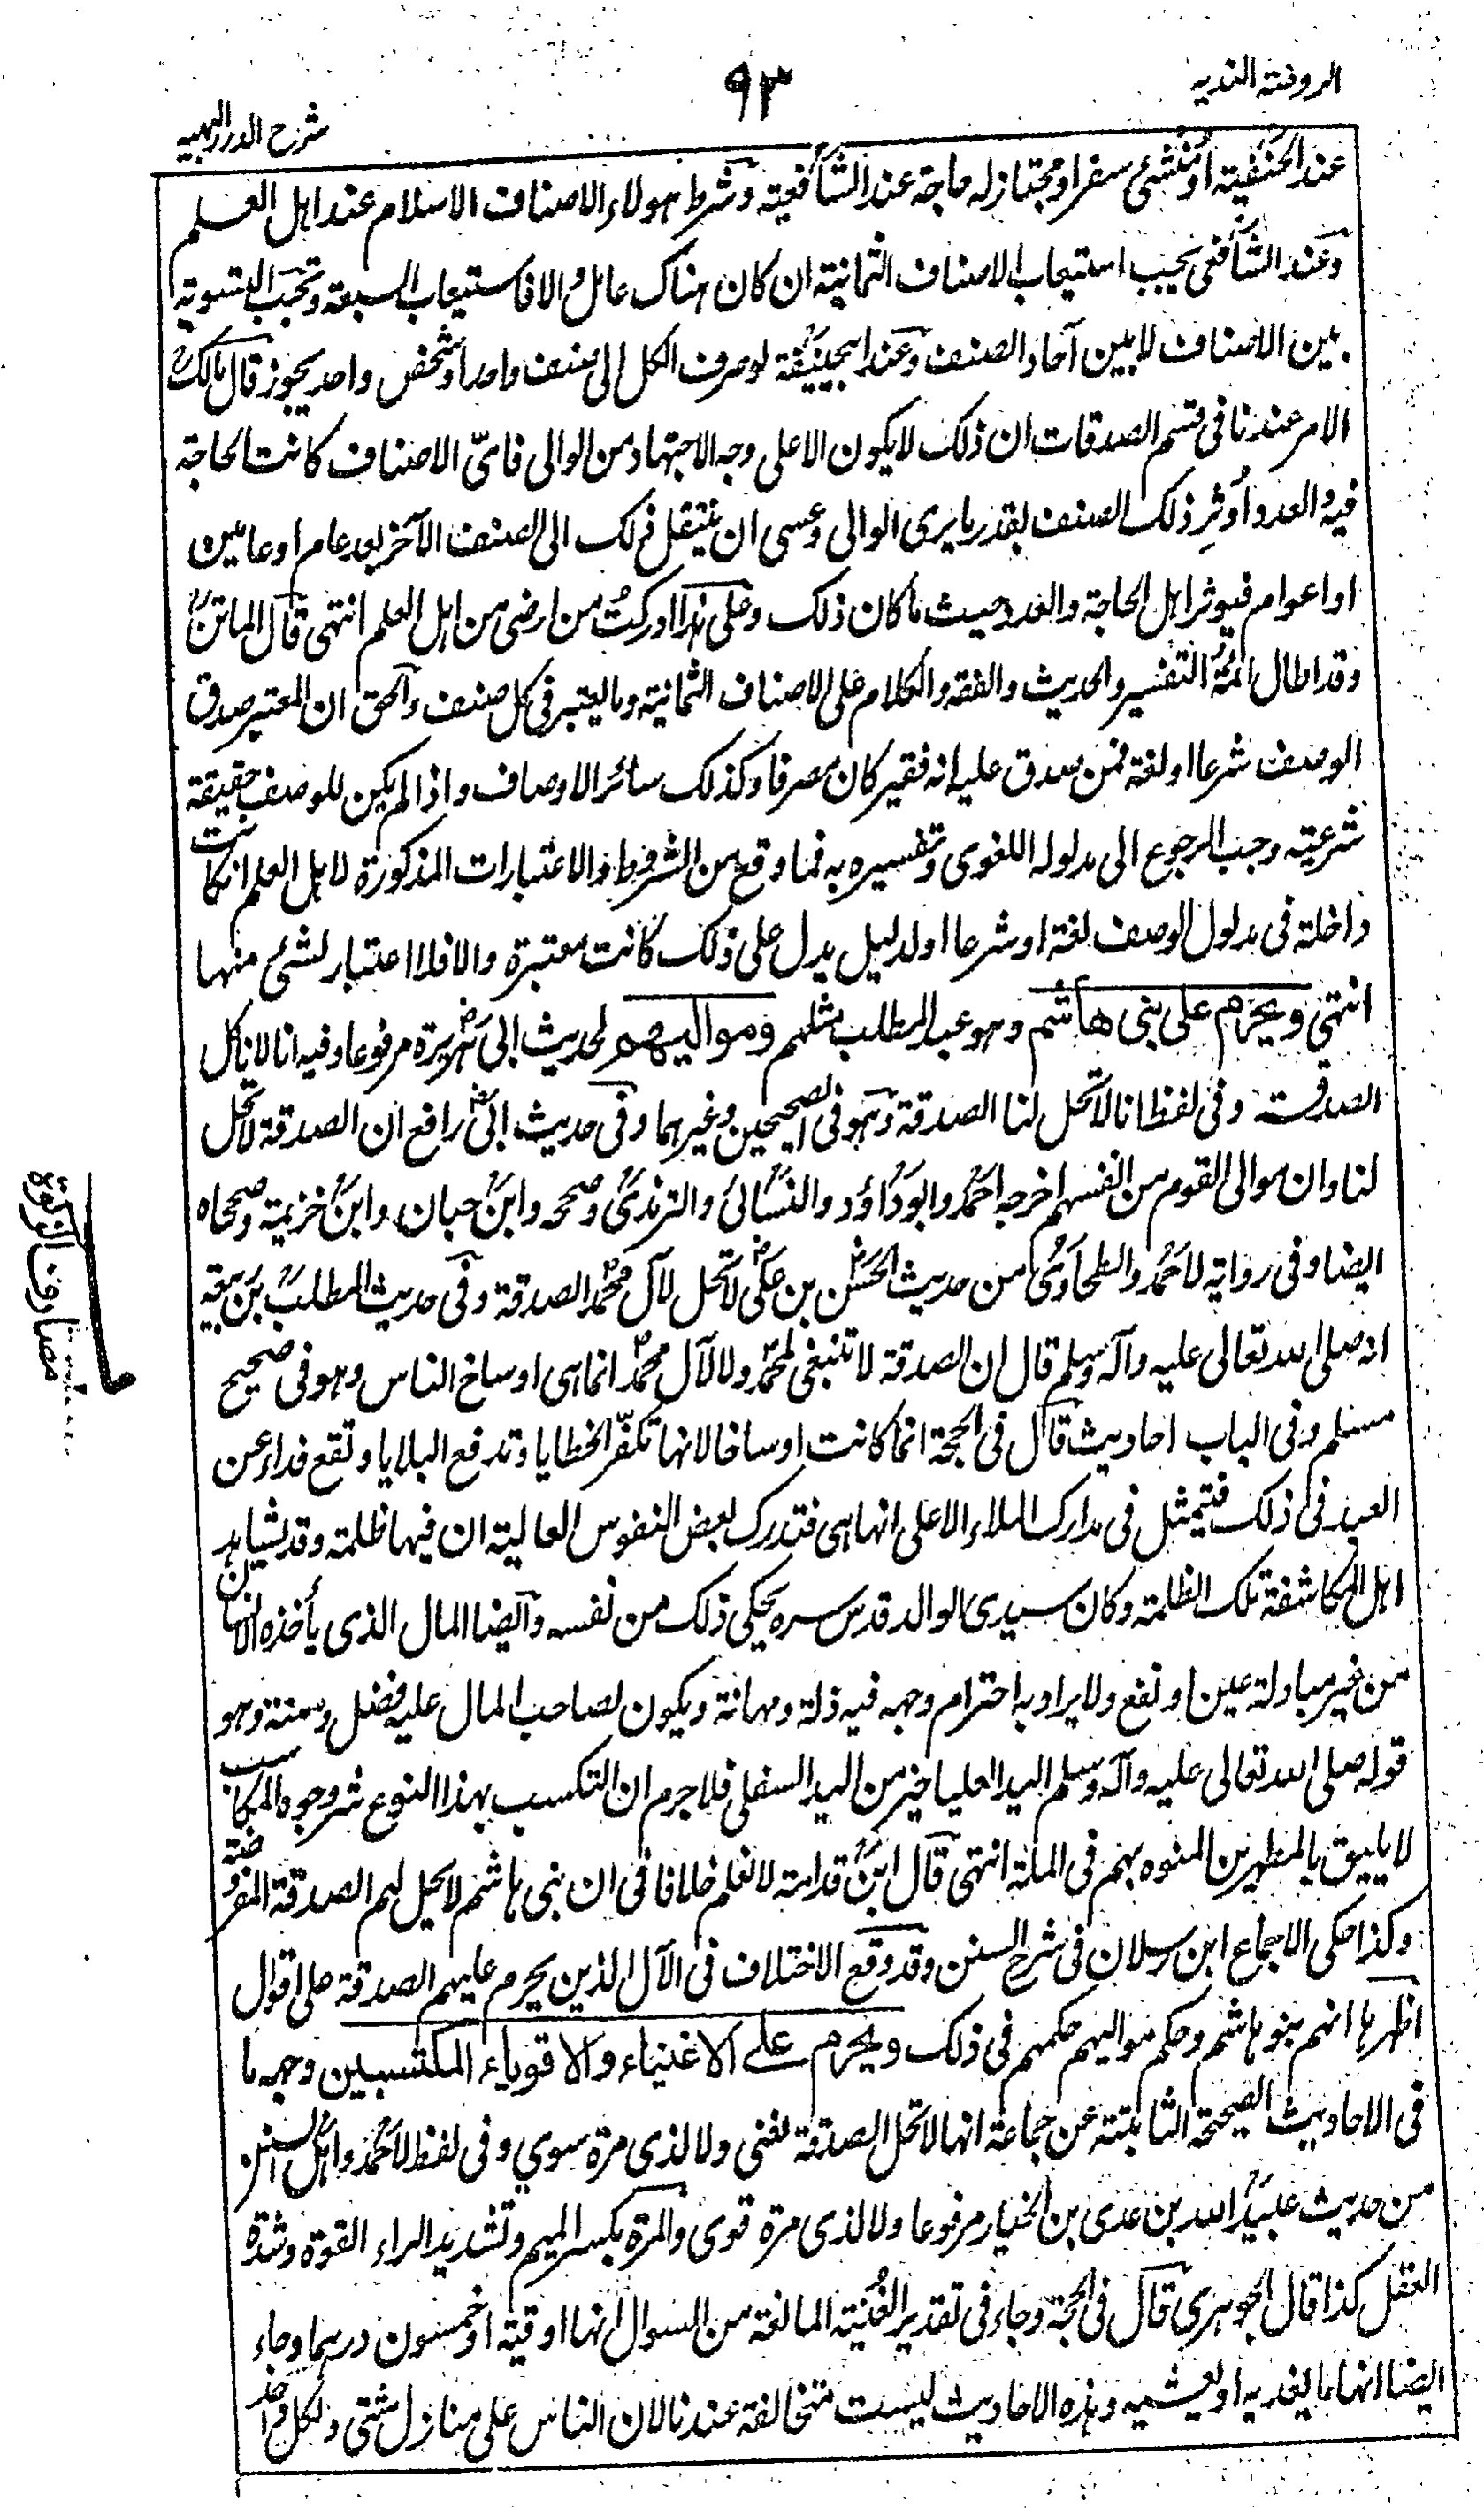 الروضة الندية
٩٣
شرح الدرر البهية
عند الحنفية او منشئ سفر او مجتاز له حاجة عند الشافعية وشرط هولاء الاصناف الاسلام عند اهل العلم
وعند الشافعى يجب استيعاب الاصناف الثمانية ان كان هناك عامل والا فاستيعاب السبعة وتجب التسوية
بين الاصناف لا بين آحاد الصنف وعند ابيحنيفة لو صرف الكل الى صنف واحد او شخص واحد يجوز قال مالك
الامر عندنا فى قسم الصدقات ان ذلك لا يكون الا على وجه الاجتهاد من الوالى فاىّ الاصناف كانت الحاجة
فيه والعدد أوثِر ذلك الصنف بقدر ما يرى الوالى وعسى ان ينتقل ذلك الى الصنف الآخر بعد عام او عامين
او اعوام فيوثر اهل الحاجة والعدد حيث ما كان ذلك وعلى هذا ادركتُ من ارضى من اهل العلم انتهى قال الماتن
وقد اطال ائمة التفسير والحديث والفقه والكلام على الاصناف الثمانية وما يعتبر فى كل صنف والحق ان المعتبر صدق
الوصف شرعا او لغة فمن صدق عليه انه فقير كان مصرفا وكذلك سائر الاوصاف واذا لم يكن للوصف حقيقة
شرعية وجب الرجوع الى مدلوله اللغوى وتفسيره به فما وقع من الشروط والاعتبارات المذكورة لاهل العلم ان كانت
داخلة فى مدلول الوصف لغة او شرعا او لدليل يدل على ذلك كانت معتبرة والا فلا اعتبار لشئ منها
انتهى ويحرم على بنى هاشم وهو عبد المطلب مثلهم ومواليهم لحديث ابى هريرة مرفوعا وفيه انا لا ناكل
الصدقة وفى لفظ انا لا تحل لنا الصدقة وهو فى الصحيحين وغيرهما وفى حديث ابى رافع ان الصدقة لا تحل
لنا وان موالى القوم من انفسهم اخرجه احمد وابوداؤد والنسائى والترمذى وصححه وابن حبان وابن خزيمة وصححاه
ايضا وفى رواية لاحمد والطحاوى من حديث الحسن بن على لا تحل لآل محمد الصدقة وفى حديث المطلب بن ربيعة
انه صلى الله تعالى عليه وآله وسلم قال ان الصدقة لا تنبغى لمحمد ولا لآل محمد انما هى اوساخ الناس وهو فى صحيح
مسلم وفى الباب احاديث قال فى الحجة انما كانت اوساخا لانها تكفّر الخطايا وتدفع البلايا وتقع فداء عن
العبد فى ذلك فيتمثل فى مدارك الملاء الاعلى انها هى فتدرك بعض النفوس العالية ان فيها ظلمة وقد يشاهد
اهل المكاشفة تلك الظلمة وكان سيدى الوالد قدس سره يحكى ذلك من نفسه وايضا المال الذى يأخذه الانسان
من غير مبادلة عين او نفع ولا يراد به احترام وجهه فيه ذلة ومهانة ويكون لصاحب المال عليه فضل ومنة وهو
قوله صلى الله تعالى عليه وآله وسلم اليد العليا خير من اليد السفلى فلا جرم ان التكسب بهذا النوع شر وجوه المكاسب
لا يليق بالمطهرين المنوه بهم فى الملة انتهى قال ابن قدامة لا نعلم خلافا فى ان بنى هاشم لا يحل لهم الصدقة المفروضة
وكذا حكى الاجماع ابن رسلان فى شرح السنن وقد وقع الاختلاف فى الآل الذين يحرم عليهم الصدقة على اقوال
اظهرها انهم بنو هاشم وحكم مواليهم حكمهم فى ذلك ويحرم على الاغنياء والاقوياء المكتسبين وجهه ما
فى الاحاديث الصحيحة الثابتة عن جماعة انها لا تحل الصدقة لغنى ولا لذى مرة سوي وفى لفظ لاحمد واهل السنن
من حديث عبيد الله بن عدى بن الخيار مرفوعا ولا لذى مرة قوى والمرة بكسر الميم وتشديد الراء القوة وشدة
العقل كذا قال الجوهرى قال فى الحجة وجاء فى تقدير الغُنية المانعة من السوال انها اوقية او خمسون درهما وجاء
ايضا انها ما يغديه او يعشيه وهذه الاحاديث ليست متخالفة عندنا لان الناس على منازل شتى ولكل واحد
مصارف الزكوة